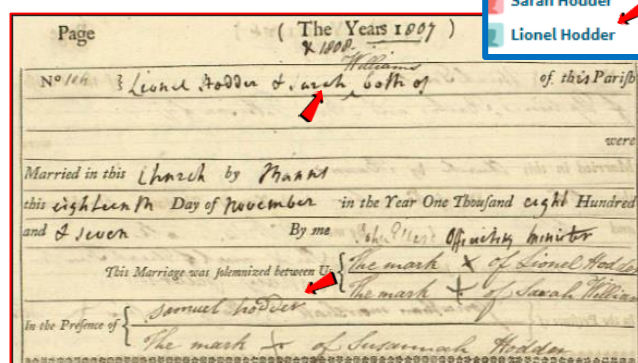 Sarah Hodder
Lionel Hodder
Page ( The Years 1807 )
& 1808
Williams
No 104 } Lionel Hodder & Sarah ^ both of of this Parish
were
Married in this Church by Banns
this eighteenth Day of November in the Year One Thousand eight Hundred
and & seven By me John Officiating minister
This Marriage was solemnized between Us { The mark X of Lionel Hodder
The mark + of Sarah William
In the Presence of { Samuel hodder
The mark + of Susannah Hodder